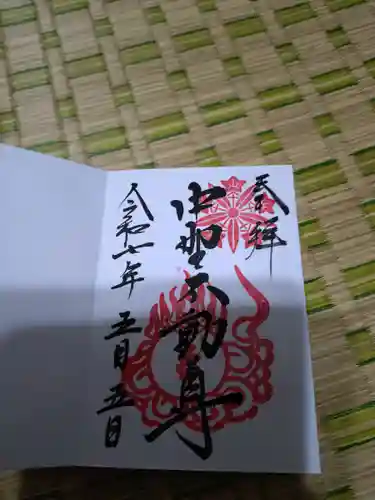 奉拝
中野不動尊
令和七年 五月 五日